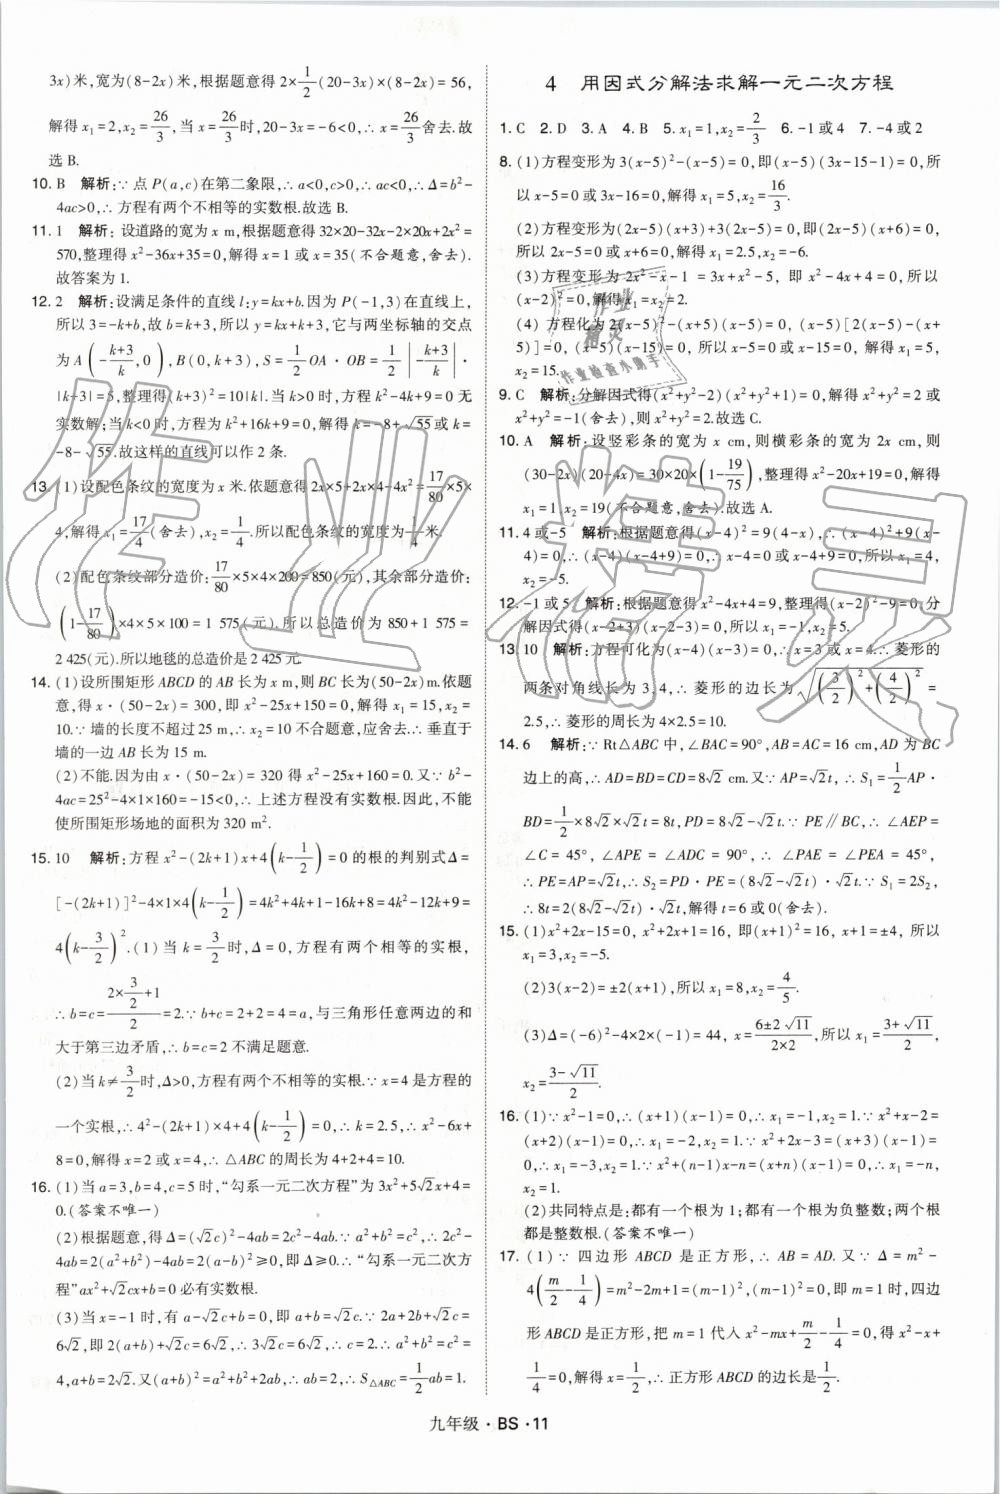 3x)米,宽为(8-2x)米,根据题意得2×1/2(20-3x)×(8-2x)=56,
解得x₁=2,x₂=26/3,当x=26/3时,20-3x=-6<0,∴x=26/3舍去.故
选B.
10. B 解析:∵点P(a,c)在第二象限,∴a<0,c>0,∴ac<0,∴Δ=b²-
4ac>0,∴方程有两个不相等的实数根.故选B.
11. 1 解析:设道路的宽为x m,根据题意得32×20-32x-20x+2x²=
570,整理得x²-36x+35=0,解得x=1或x=35(不合题意,舍去).
故答案为1.
12. 2 解析:设满足条件的直线l:y=kx+b.因为P(-1,3)在直线上,
所以3=-k+b,故b=k+3,所以y=kx+k+3,它与两坐标轴的交点
为A(-(k+3)/k,0),B(0,k+3),S=1/2OA·OB=1/2|-(k+3)/k|·
|k+3|=5,整理得(k+3)²=10|k|.当k>0时,方程k²-4k+9=0无
实数解;当k<0时,方程k²+16k+9=0,解得k=-8+√55或k=
-8-√55.故这样的直线可以作2条.
13. (1)设配色条纹的宽度为x米.依题意得2x×5+2x×4-4x²=17/80×5×
4,解得x₁=17/4(舍去),x₂=1/4.所以配色条纹的宽度为1/4米.
(2)配色条纹部分造价:17/80×5×4×200=850(元),其余部分造价:
(1-17/80)×4×5×100=1 575(元).所以总造价为850+1 575=
2 425(元).所以地毯的总造价是2 425元.
14. (1)设所围矩形ABCD的AB长为x m,则BC长为(50-2x)m.依题
意,得x·(50-2x)=300,即x²-25x+150=0,解得x₁=15,x₂=
10.∵墙的长度不超过25 m,∴x₂=10不合题意,应舍去.∴垂直于
墙的一边AB长为15 m.
(2)不能.因为由x·(50-2x)=320得x²-25x+160=0.又∵b²-
4ac=25²-4×1×160=-15<0,∴上述方程没有实数根.因此,不能
使所围矩形场地的面积为320 m².
15. 10 解析:方程x²-(2k+1)x+4(k-1/2)=0的根的判别式Δ=
[-(2k+1)]²-4×1×4(k-1/2)=4k²+4k+1-16k+8=4k²-12k+9=
4(k-3/2)².(1)当k=3/2时,Δ=0,方程有两个相等的实根,
∴b=c=(2×3/2+1)/2=2.∵b+c=2+2=4=a,与三角形任意两边的和
大于第三边矛盾,∴b=c=2不满足题意.
(2)当k≠3/2时,Δ>0,方程有两个不相等的实根.∵x=4是方程的
一个实根,∴4²-(2k+1)×4+4(k-1/2)=0,∴k=2.5,∴x²-6x+
8=0,解得x=2或x=4,∴△ABC的周长为4+2+4=10.
16. (1)当a=3,b=4,c=5时,“勾系一元二次方程”为3x²+5√2x+4=
0.(答案不唯一)
(2)根据题意,得Δ=(√2c)²-4ab=2c²-4ab.∵a²+b²=c²,∴2c²-
4ab=2(a²+b²)-4ab=2(a-b)²≥0,即Δ≥0,∴“勾系一元二次方
程”ax²+√2cx+b=0必有实数根.
(3)当x=-1时,有a-√2c+b=0,即a+b=√2c.∵2a+2b+√2c=
6√2,即2(a+b)+√2c=6√2,∴3√2c=6√2,∴c=2,∴a²+b²=c²=
4,a+b=2√2.又(a+b)²=a²+b²+2ab,∴ab=2,∴S△ABC=1/2ab=1.
4 用因式分解法求解一元二次方程
1. C 2. D 3. A 4. B 5. x₁=1,x₂=2/3 6. -1或4 7. -4或2
8. (1)方程变形为3(x-5)²-(x-5)=0,即(x-5)(3x-15-1)=0,所
以x-5=0或3x-16=0,解得x₁=5,x₂=16/3.
(2)方程变形为(2x-5)(x+3)+3(2x-5)=0,(2x-5)(x+6)=0,
所以2x-5=0或x+6=0,解得x₁=2.5,x₂=-6.
(3)方程变形为2x²-x-1=3x+x²-5,即x²-4x+4=0,所以
(x-2)²=0,解得x₁=x₂=2.
(4)方程化为2(x-5)²-(x+5)(x-5)=0,(x-5)[2(x-5)-(x+
5)]=0,(x-5)(x-15)=0,所以x-5=0或x-15=0,解得x₁=5,
x₂=15.
9. C 解析:分解因式得(x²+y²-2)(x²+y²+1)=0,解得x²+y²=2或
x²+y²=-1(舍去),则x²+y²=2.故选C.
10. A 解析:设竖彩条的宽为x cm,则横彩条的宽为2x cm,则
(30-2x)(20-4x)=30×20×(1-19/75),整理得x²-20x+19=0,解得
x₁=1,x₂=19(不合题意,舍去).故选A.
11. 4或-5 解析:根据题意得(x-4)²=9(4-x),∴(x-4)²+9(x-
4)=0,∴(x-4)(x-4+9)=0,∴x-4=0或x-4+9=0,所以x₁=4,
x₂=-5.
12. -1或5 解析:根据题意得x²-4x+4=9,整理得(x-2)²-9=0,分
解因式得(x-2+3)(x-2-3)=0,解得x₁=-1,x₂=5.
13. 10 解析:方程可化为(x-4)(x-3)=0,∴x=3或x=4.∴菱形的
两条对角线长为3,4,∴菱形的边长为√((3/2)²+(4/2)²)=
2.5,∴菱形的周长为4×2.5=10.
14. 6 解析:∵Rt△ABC中,∠BAC=90°,AB=AC=16 cm,AD为BC
边上的高,∴AD=BD=CD=8√2 cm.又∵AP=√2t,∴S₁=1/2AP·
BD=1/2×8√2×√2t=8t,PD=8√2-√2t.∵PE∥BC,∴∠AEP=
∠C=45°,∠APE=∠ADC=90°,∴∠PAE=∠PEA=45°,
∴PE=AP=√2t,∴S₂=PD·PE=(8√2-√2t)·√2t.∵S₁=2S₂,
∴8t=2(8√2-√2t)·√2t,解得t=6或0(舍去).
15. (1)x²+2x-15=0,x²+2x+1=16,即(x+1)²=16,x+1=±4,所以
x₁=3,x₂=-5.
(2)3(x-2)=±2(x+1),所以x₁=8,x₂=4/5.
(3)Δ=(-6)²-4×2×(-1)=44,x=(6±2√11)/(2×2),所以x₁=(3+√11)/2,
x₂=(3-√11)/2.
16. (1)∵x²-1=0,∴(x+1)(x-1)=0,∴x₁=-1,x₂=1.∵x²+x-2=
(x+2)(x-1)=0,∴x₁=-2,x₂=1.∵x²+2x-3=(x+3)(x-1)=
0,∴x₁=-3,x₂=1.…x²+(n-1)x-n=(x+n)(x-1)=0,∴x₁=-n,
x₂=1.
(2)共同特点是:都有一个根为1;都有一个根为负整数;两个根
都是整数根.(答案不唯一)
17. (1)∵四边形ABCD是正方形,∴AB=AD.又∵Δ=m²-
4(m/2-1/4)=m²-2m+1=(m-1)²,(m-1)²=0,即m=1时,四边
形ABCD是正方形,把m=1代入x²-mx+m/2-1/4=0,得x²-x+
1/4=0,解得x=1/2,∴正方形ABCD的边长是1/2.
九年级·BS·11
作业精灵
作业
精灵
作业检查小助手